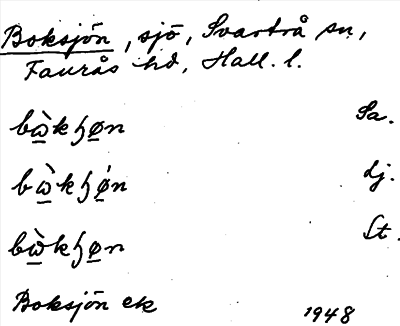 Boksjön, sjö, Svartrå sn,
Faurås hd, Hall. l.
bὼ̲kɧø̲n Sa.
bὼ̲kɧǿ̲n Lj.
bὼ̲kɧø̲n St.
Boksjön ek 1948